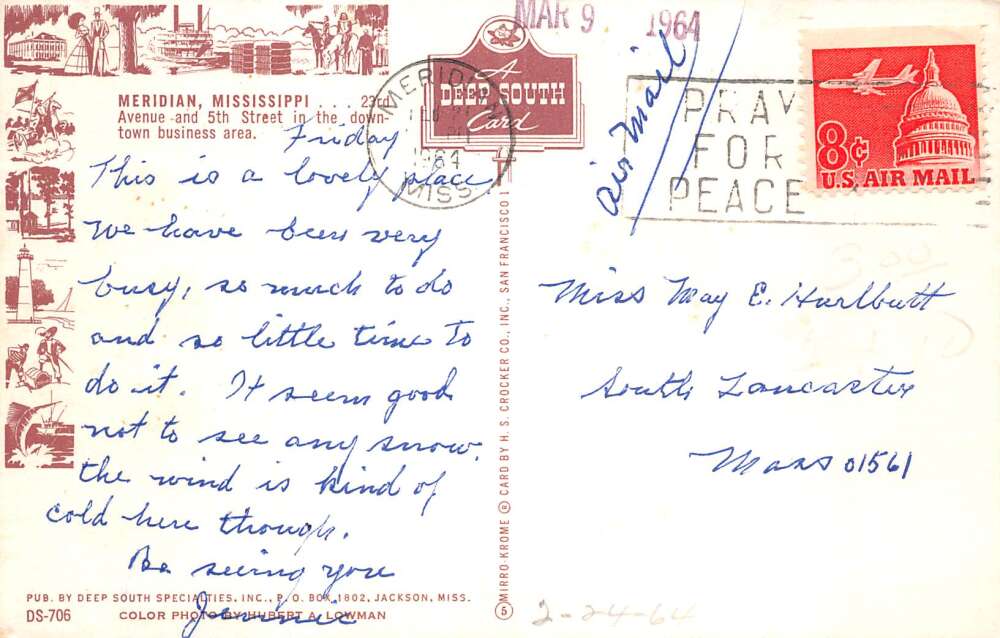 MAR 9 1964
MERIDIAN, MISSISSIPPI . . . 23rd
Avenue and 5th Street in the down-
town business area.
A
DEEP SOUTH
Card
MISS.
1964
air mail
PRAY
FOR
PEACE
8¢
U.S. AIR MAIL
Friday
This is a lovely place
We have been very
busy, so much to do
and so little time to
do it. It seems good
not to see any snow.
the wind is kind of
cold here though.
Be seeing you
Jennie
PUB. BY DEEP SOUTH SPECIALTIES, INC., P. O. BOX 1802, JACKSON, MISS.
DS-706 COLOR PHOTO BY HUBERT A. LOWMAN
MIRRO-KROME ® CARD BY H. S. CROCKER CO., INC., SAN FRANCISCO 1
5
Miss May E. Hurlbutt
South Lancaster
Mass 01561
3.00
2-24-64